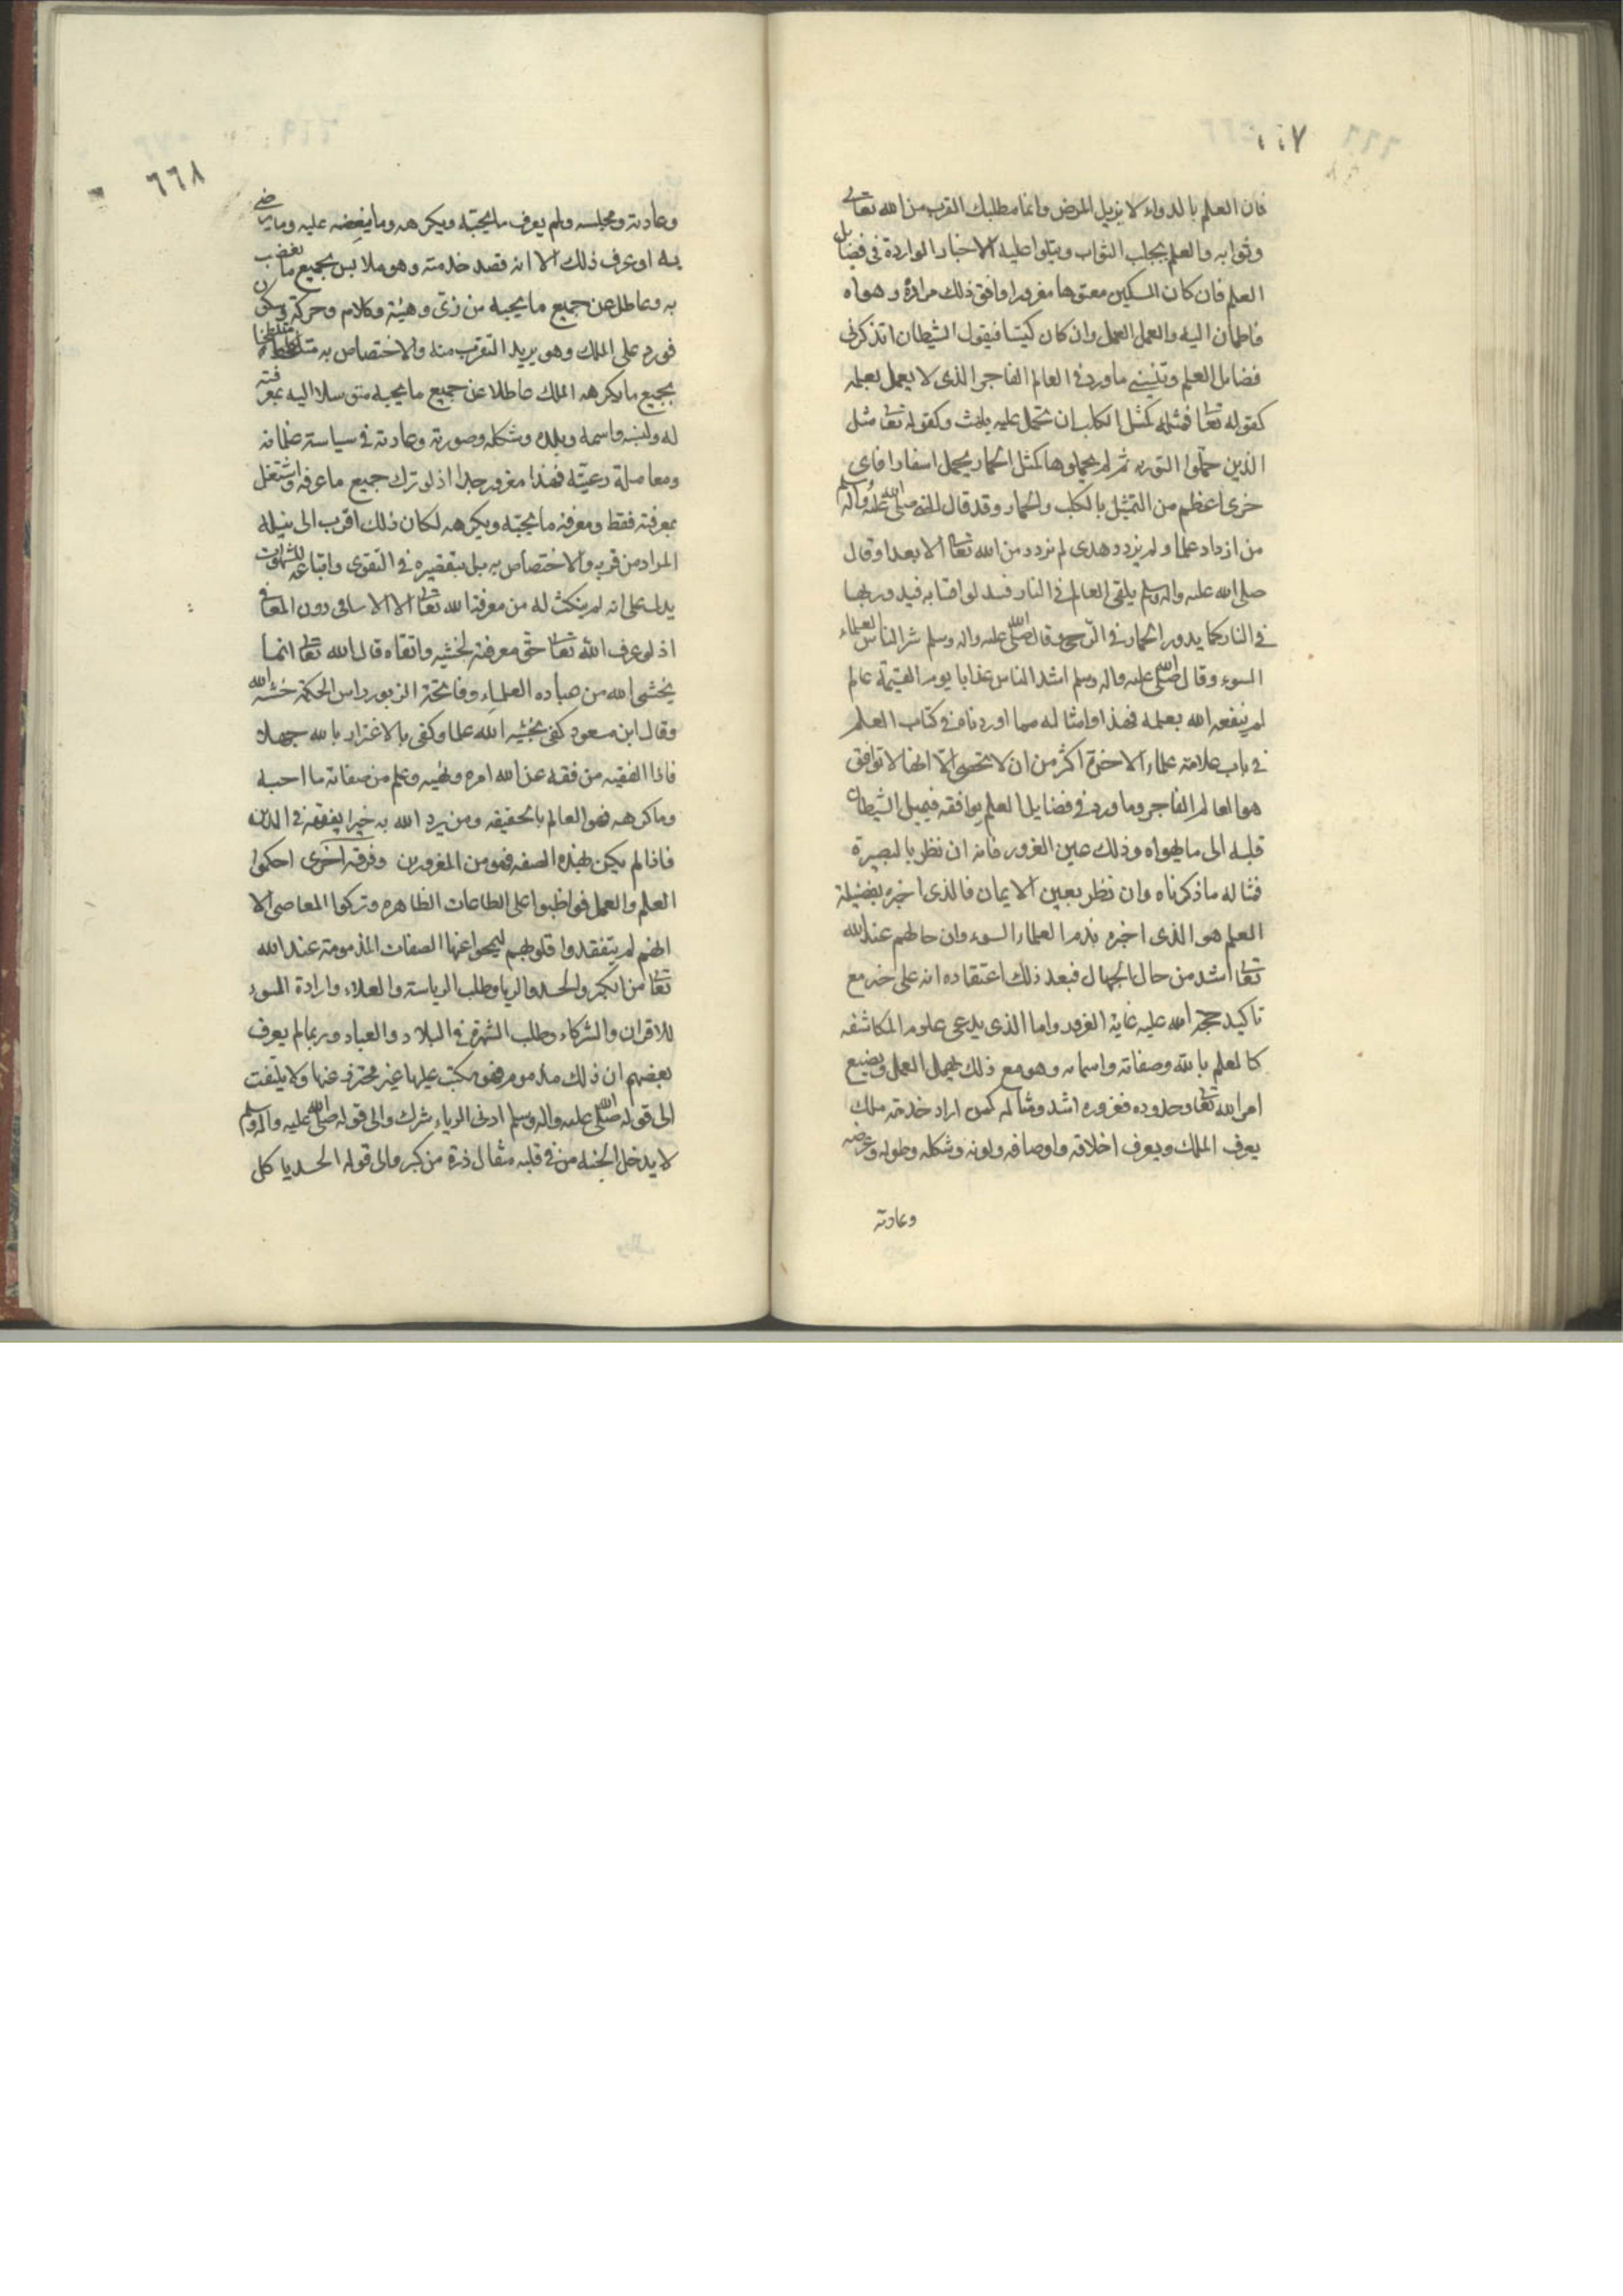 ٦٦٧
فان العلم بالدواء لا يزيل المرض وانما مطلبك القرب من الله تعالى
وثوابه والعلم يجلب الثواب ويتلوا عليه الاخبار الواردة فى فضايل
العلم فان كان المسكين معتوها مغرورا وافق ذلك مراده وهواه
فاطمان اليه واهمل العمل وان كان كيسا فيقول الشيطان اتذكرنى
فضايل العلم وتنسينى ما ورد فى العالم الفاجر الذى لا يعمل بعلمه
كقوله تعا فمثله كمثل الكلب ان تحمل عليه يلهث وكقوله تعا مثل
الذين حملوا التورية ثم لم يحملوها كمثل الحمار يحمل اسفارا فاى
خزى اعظم من التمثيل بالكلب والحمار وقد قال صلى الله عليه واله وسلم
من ازداد علما ولم يزدد هدى لم يزدد من الله تعا الا بعدا وقال
صلى الله عليه واله وسلم يلقى العالم فى النار فتندلق اقتابه فيدور بها
فى النار كما يدور الحمار فى الرحى وقال صلى الله عليه واله وسلم شر الناس العلماء
السوء وقال صلى الله عليه واله وسلم اشد الناس عذابا يوم القيمة عالم
لم ينفعه الله بعلمه فهذا وامثاله مما اوردناه فى كتاب العلم
فى باب علامة علماء الاخرة اكثر من ان لا تحصى الا انها لا توافق
هو العالم الفاجر وما ورد فى فضايل العلم يوافقه فيميل الشيطان
قلبه الى ما يهواه وذلك عين الغرور فانه ان نظر بالبصيرة
فمثاله ما ذكرناه وان نظر بعين الايمان فالذى اخبره بفضيلة
العلم هو الذى اخبره بذم العلماء السوء وان حالهم عند الله
تعا اشد من حال الجهال فبعد ذلك اعتقاده انه على خير مع
تاكيد حجة الله عليه غاية الغرور واما الذى يدعى علوم المكاشفه
كالعلم بالله وصفاته واسمائه وهو مع ذلك يهمل العمل ويضيع
امر الله تعا وحدوده فغروره اشد ومثاله كمن اراد خدمة ملك
يعرف الملك ويعرف اخلاقه واوصافه ولونه وشكله وطوله وعرضه
وعادته
٦٦٨
وعادته ومجلسه ولم يعرف ما يحبه ويكرهه وما يبغضه عليه وما يرضى
به او عرف ذلك الا انه قصد خدمته وهو ملابس بجميع ما يغضب
به وعاطل عن جميع ما يحبه من زى وهيئة وكلام وحركة وسكون
فورد على الملك وهو يريد التقرب منه والاختصاص به متلطخا
بجميع ما يكرهه الملك عاطلا عن جميع ما يحبه متوسلا اليه بمعرفته
له ولنسبه واسمه وبلده وشكله وصورته وعادته فى سياسة غلمانه
ومعاملة رعيته فهذا مغرور جدا اذ لو ترك جميع ما عرفه واشتغل
بمعرفته فقط ومعرفة ما يحبه ويكرهه لكان ذلك اقرب الى نيله
المراد من قربه والاختصاص به بل بتقصيره فى التقوى واتباعه للشهوات
يدل على انه لم ينكشف له من معرفة الله تعا الا الاسامى دون المعانى
اذ لو عرف الله تعا حق معرفته لخشيه واتقاه قال الله تعا انما
يخشى الله من عباده العلماء وفاتحة الزبور راس الحكمة خشية الله
وقال ابن مسعود كفى بخشية الله علما وكفى بالاغترار بالله جهلا
فاذا الفقيه من فقه عن الله امره ونهيه وعلم من صفاته ما احبه
وما كرهه فهو العالم بالحقيقه ومن يرد الله به خيرا يفقهه فى الدين
فاذا لم يكن بهذه الصفه فهو من المغرورين وفرقة اخرى احكموا
العلم والعمل فواظبوا على الطاعات الظاهره وتركوا المعاصى الا
انهم لم يتفقدوا قلوبهم ليمحوا عنها الصفات المذمومة عند الله
تعا من الكبر والحسد والريا وطلب الرياسة والعلاء وارادة السوء
للاقران والشركاء وطلب الشهرة فى البلاد والعباد وربما لم يعرف
بعضهم ان ذلك مذموم فهو مكب عليها غير محترز عنها ولا يلتفت
الى قوله صلى الله عليه واله وسلم ادنى الرياء شرك والى قوله صلى الله عليه واله وسلم
لا يدخل الجنة من فى قلبه مثقال ذرة من كبر والى قوله الحسد ياكل